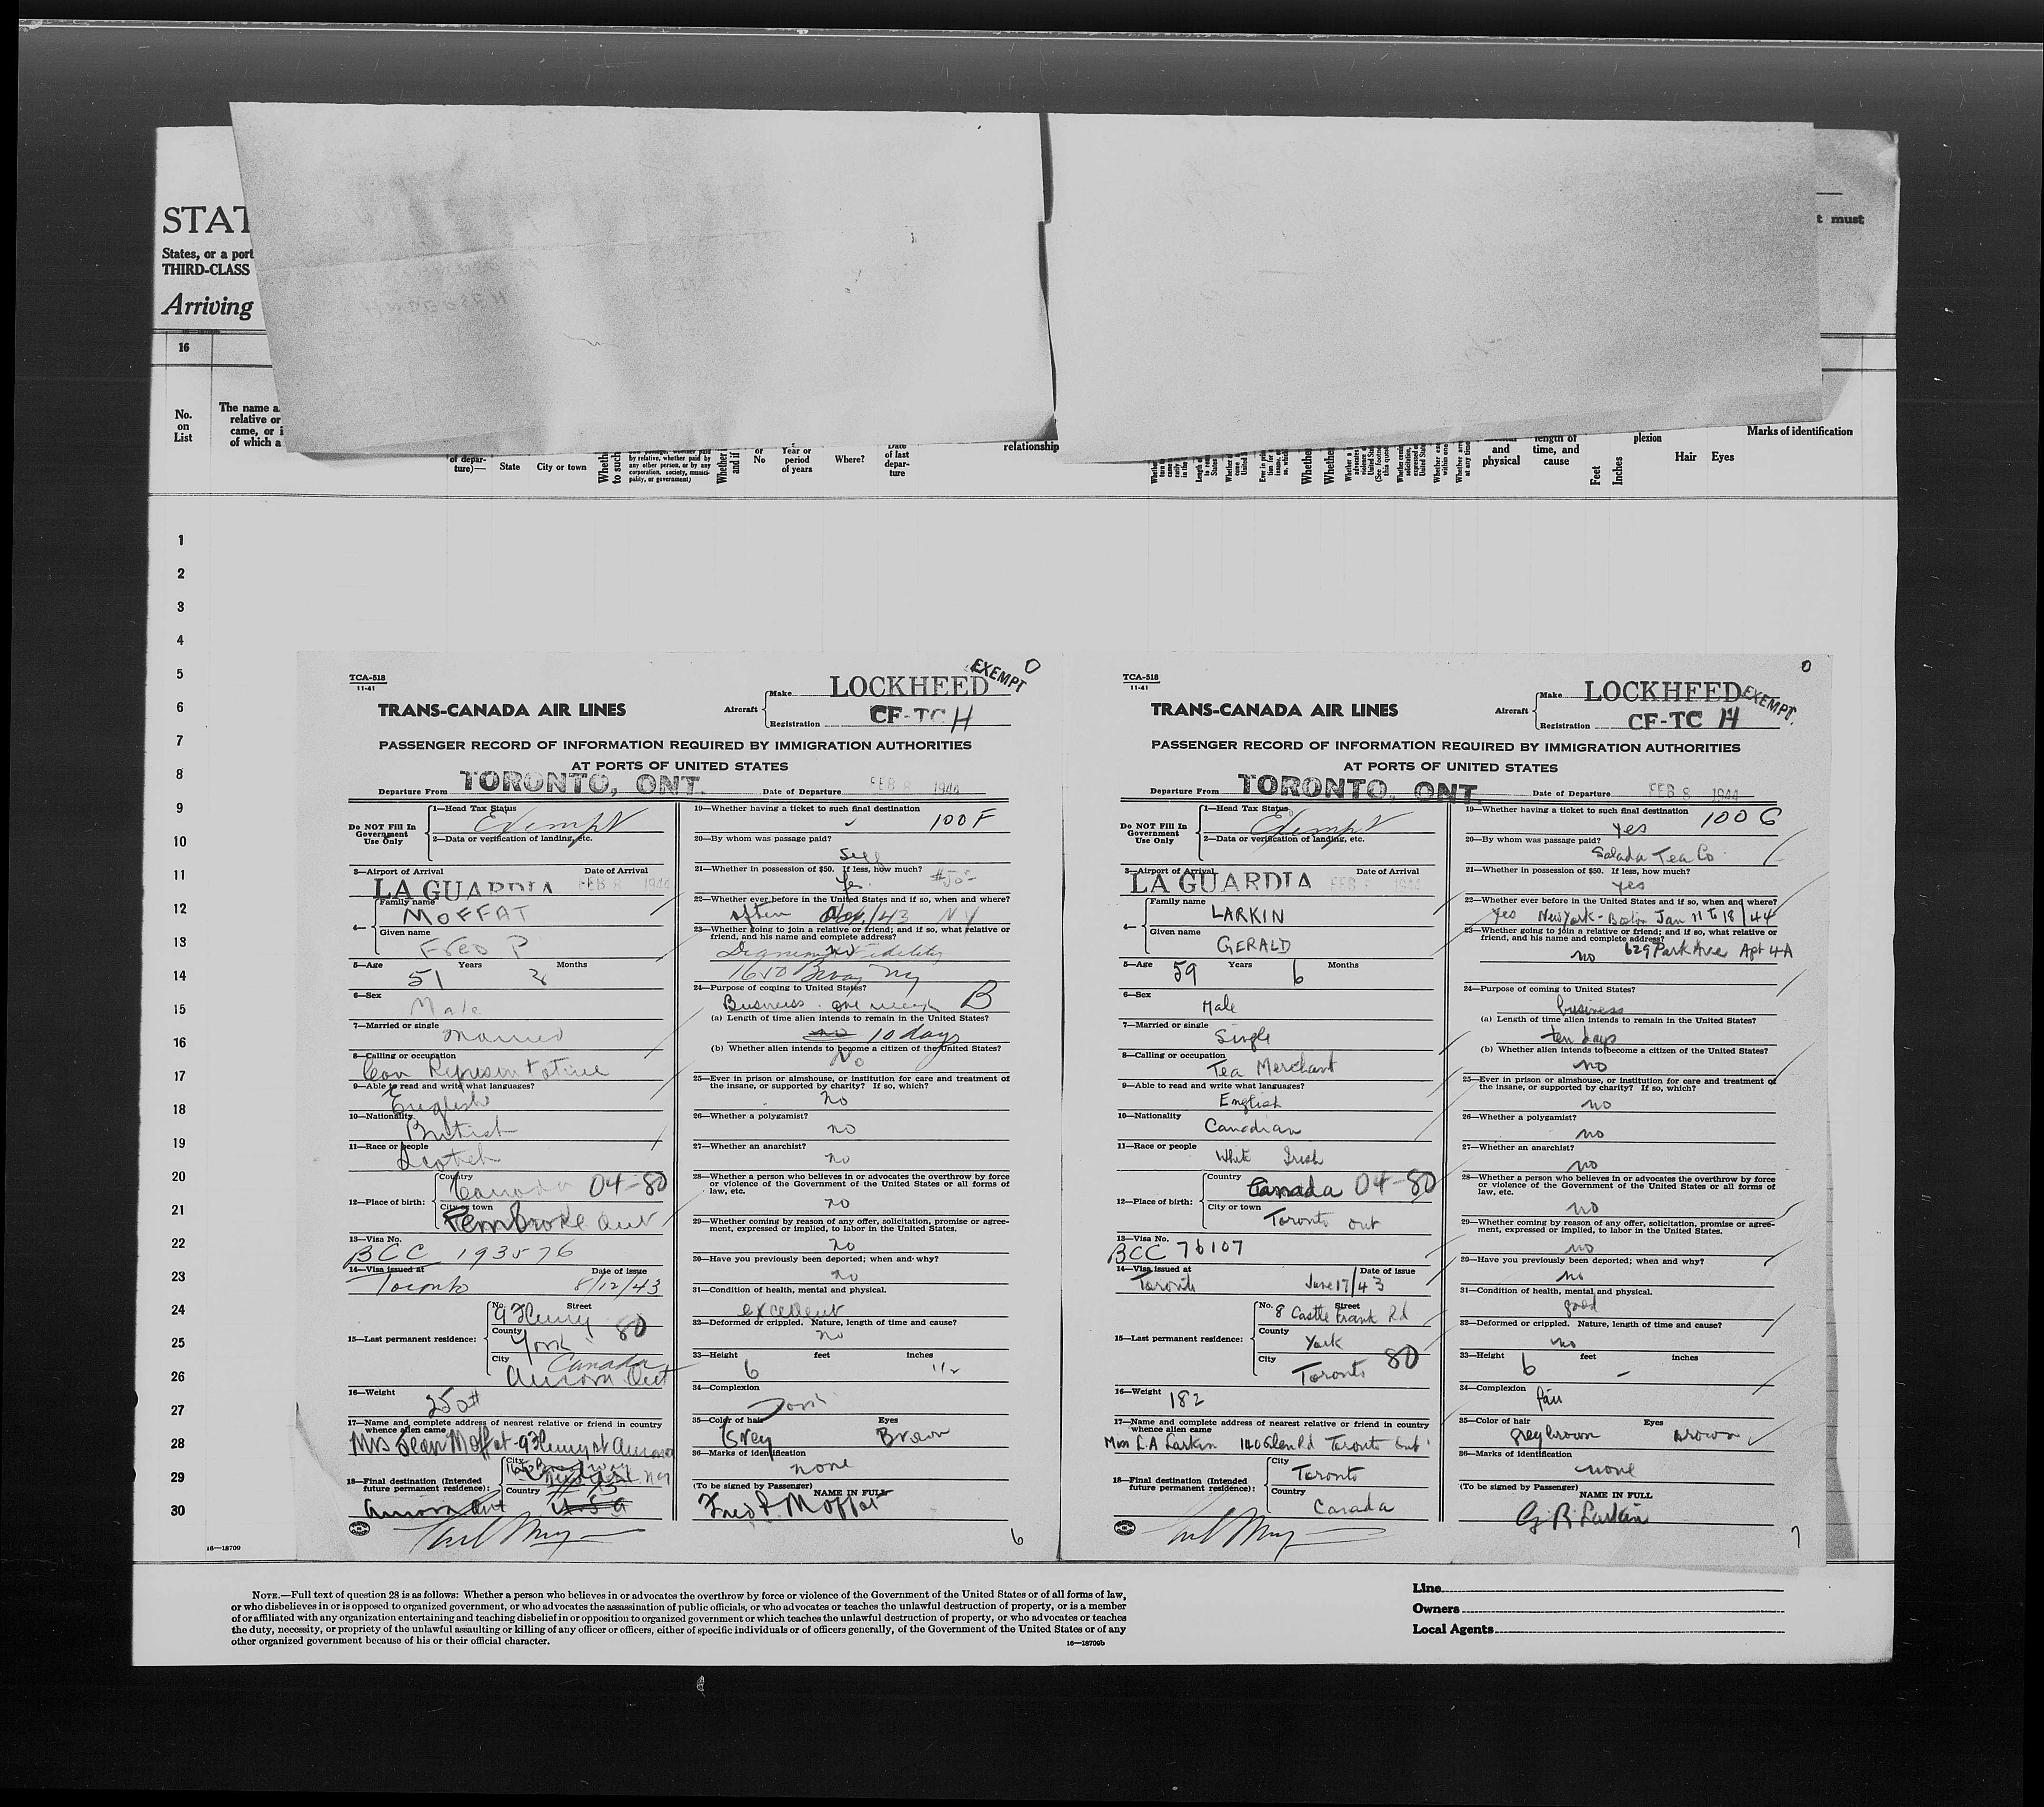 STAT
States, or a port
THIRD-CLASS
Arriving
t must
16
No.
on
List
The name a
relative or
came, or i
of which a
of depar-
ture)—
State
City or town
by relative, whether paid by
any other person, or by any
corporation, society, munici-
pality, or government)
or
No
Year or
period
of years
Where?
Date
of last
depar-
ture
relationship
and
physical
length of
time, and
cause
Feet
Inches
plexion
Hair Eyes
Marks of identification
1
2
3
4
5
6
7
8
9
10
11
12
13
14
15
16
17
18
19
20
21
22
23
24
25
26
27
28
29
30
TCA-518
11-41
EXEMPT 0
TRANS-CANADA AIR LINES
Aircraft
Make LOCKHEED
Registration CF-TC H
PASSENGER RECORD OF INFORMATION REQUIRED BY IMMIGRATION AUTHORITIES
AT PORTS OF UNITED STATES
Departure From TORONTO, ONT. Date of Departure FEB 8 1944
Do NOT Fill In
Government
Use Only
1—Head Tax Status
Exempt
2—Data or verification of landing, etc.
3—Airport of Arrival Date of Arrival
LA GUARDIA FEB 8 1944
4— Family name
MOFFAT
Given name
Fred P
5—Age Years Months
51 2
6—Sex
Male
7—Married or single
Married
8—Calling or occupation
Con Representative
9—Able to read and write what languages?
English
10—Nationality
British
11—Race or people
Scotch
12—Place of birth:
Country
Canada 04-80
City or town
Pembroke Ont
13—Visa No.
BCC 193576
14—Visa issued at Date of issue
Toronto 8/12/43
15—Last permanent residence:
No. Street
9 Henry
County
York 80
City Canada
Aurora Ont
16—Weight
250#
17—Name and complete address of nearest relative or friend in country
whence alien came
Mrs Jean Moffat - 9 Henry st Aurora
18—Final destination (Intended
future permanent residence):
City
Country
Aurora Ont U S A
19—Whether having a ticket to such final destination
100 F
20—By whom was passage paid?
Self
21—Whether in possession of $50. If less, how much?
Yes. #50-
22—Whether ever before in the United States and if so, when and where?
often Nov/43 NY
23—Whether going to join a relative or friend; and if so, what relative or
friend, and his name and complete address?
no Fidelity
1650 Bway NY
24—Purpose of coming to United States?
Business one week B
(a) Length of time alien intends to remain in the United States?
no 10 days
(b) Whether alien intends to become a citizen of the United States?
No
25—Ever in prison or almshouse, or institution for care and treatment of
the insane, or supported by charity? If so, which?
no
26—Whether a polygamist?
no
27—Whether an anarchist?
no
28—Whether a person who believes in or advocates the overthrow by force
or violence of the Government of the United States or all forms of
law, etc.
no
29—Whether coming by reason of any offer, solicitation, promise or agree-
ment, expressed or implied, to labor in the United States.
no
30—Have you previously been deported; when and why?
no
31—Condition of health, mental and physical.
excellent
32—Deformed or crippled. Nature, length of time and cause?
no
33—Height feet inches
6 1/2
34—Complexion
Dark
35—Color of hair Eyes
Grey Brown
36—Marks of identification
none
(To be signed by Passenger) NAME IN FULL
Fred P. Moffat
6
TCA-518
11-41
0
EXEMPT.
TRANS-CANADA AIR LINES
Aircraft
Make LOCKHEED
Registration CF-TC H
PASSENGER RECORD OF INFORMATION REQUIRED BY IMMIGRATION AUTHORITIES
AT PORTS OF UNITED STATES
Departure From TORONTO, ONT. Date of Departure FEB 8 1944
Do NOT Fill In
Government
Use Only
1—Head Tax Status
Exempt
2—Data or verification of landing, etc.
3—Airport of Arrival Date of Arrival
LA GUARDIA FEB 8 1944
4— Family name
LARKIN
Given name
GERALD
5—Age Years Months
59 6
6—Sex
Male
7—Married or single
Single
8—Calling or occupation
Tea Merchant
9—Able to read and write what languages?
English
10—Nationality
Canadian
11—Race or people
White Irish
12—Place of birth:
Country
Canada 04-80
City or town
Toronto Ont
13—Visa No.
BCC 76107
14—Visa issued at Date of issue
Toronto June 17/43
15—Last permanent residence:
No. Street
8 Castle Frank Rd
County
York
City
Toronto 80
16—Weight
182
17—Name and complete address of nearest relative or friend in country
whence alien came
Miss L.A Larkin 140 Glen Rd Toronto Ont
18—Final destination (Intended
future permanent residence):
City
Toronto
Country
Canada
19—Whether having a ticket to such final destination
yes 100 G
20—By whom was passage paid?
Salada Tea Co
21—Whether in possession of $50. If less, how much?
yes
22—Whether ever before in the United States and if so, when and where?
Yes New York - Boston Jan 11 to 18/44
23—Whether going to join a relative or friend; and if so, what relative or
friend, and his name and complete address?
no 629 Park Ave Apt 4A
24—Purpose of coming to United States?
business
(a) Length of time alien intends to remain in the United States?
ten days
(b) Whether alien intends to become a citizen of the United States?
no
25—Ever in prison or almshouse, or institution for care and treatment of
the insane, or supported by charity? If so, which?
no
26—Whether a polygamist?
no
27—Whether an anarchist?
no
28—Whether a person who believes in or advocates the overthrow by force
or violence of the Government of the United States or all forms of
law, etc.
no
29—Whether coming by reason of any offer, solicitation, promise or agree-
ment, expressed or implied, to labor in the United States.
no
30—Have you previously been deported; when and why?
no
31—Condition of health, mental and physical.
good
32—Deformed or crippled. Nature, length of time and cause?
no
33—Height feet inches
6 –
34—Complexion
fair
35—Color of hair Eyes
grey brown brown
36—Marks of identification
none
(To be signed by Passenger)
NAME IN FULL
G. R. Larkin
7
16—18709
NOTE.—Full text of question 28 is as follows: Whether a person who believes in or advocates the overthrow by force or violence of the Government of the United States or of all forms of law,
or who disbelieves in or is opposed to organized government, or who advocates the assassination of public officials, or who advocates or teaches the unlawful destruction of property, or is a member
of or affiliated with any organization entertaining and teaching disbelief in or opposition to organized government or which teaches the unlawful destruction of property, or who advocates or teaches
the duty, necessity, or propriety of the unlawful assaulting or killing of any officer or officers, either of specific individuals or of officers generally, of the Government of the United States or of any
other organized government because of his or their official character.
16—18709b
Line
Owners
Local Agents